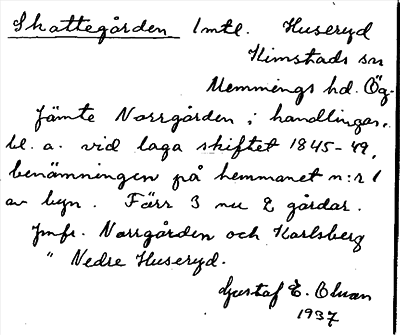 Skattegården 1 mtl. Huseryd
Kimstads sn
Memmings hd. Ög.
Jämte Norrgården i handlingar,
bl. a. vid laga skiftet 1845-49,
benämningen på hemmanet n:r 1
av byn. Förr 3 nu 2 gårdar.
Jmfr. Norrgården och Karlsberg
" Nedre Huseryd.
Gustaf E. Olsson
1937